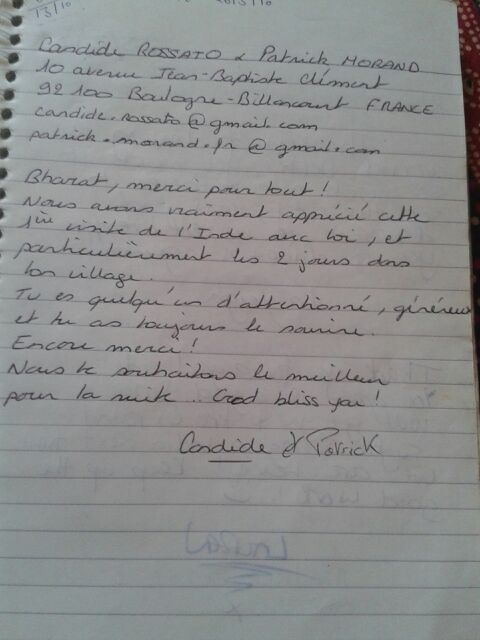 13/10
Candide ROSSATO & Patrick MORAND
10 avenue Jean-Baptiste Clément
92100 Boulogne-Billancourt FRANCE
candide.rossato@gmail.com
patrick.morand.fr@gmail.com
Bharat, merci pour tout !
Nous avons vraiment apprécié cette
1ère visite de l'Inde avec toi, et
particulièrement les 2 jours dans
ton village.
Tu es quelqu'un d'attentionné, généreux
et tu as toujours le sourire.
Encore merci !
Nous te souhaitons le meilleur
pour la suite.. God bliss you !
Candide & Patrick